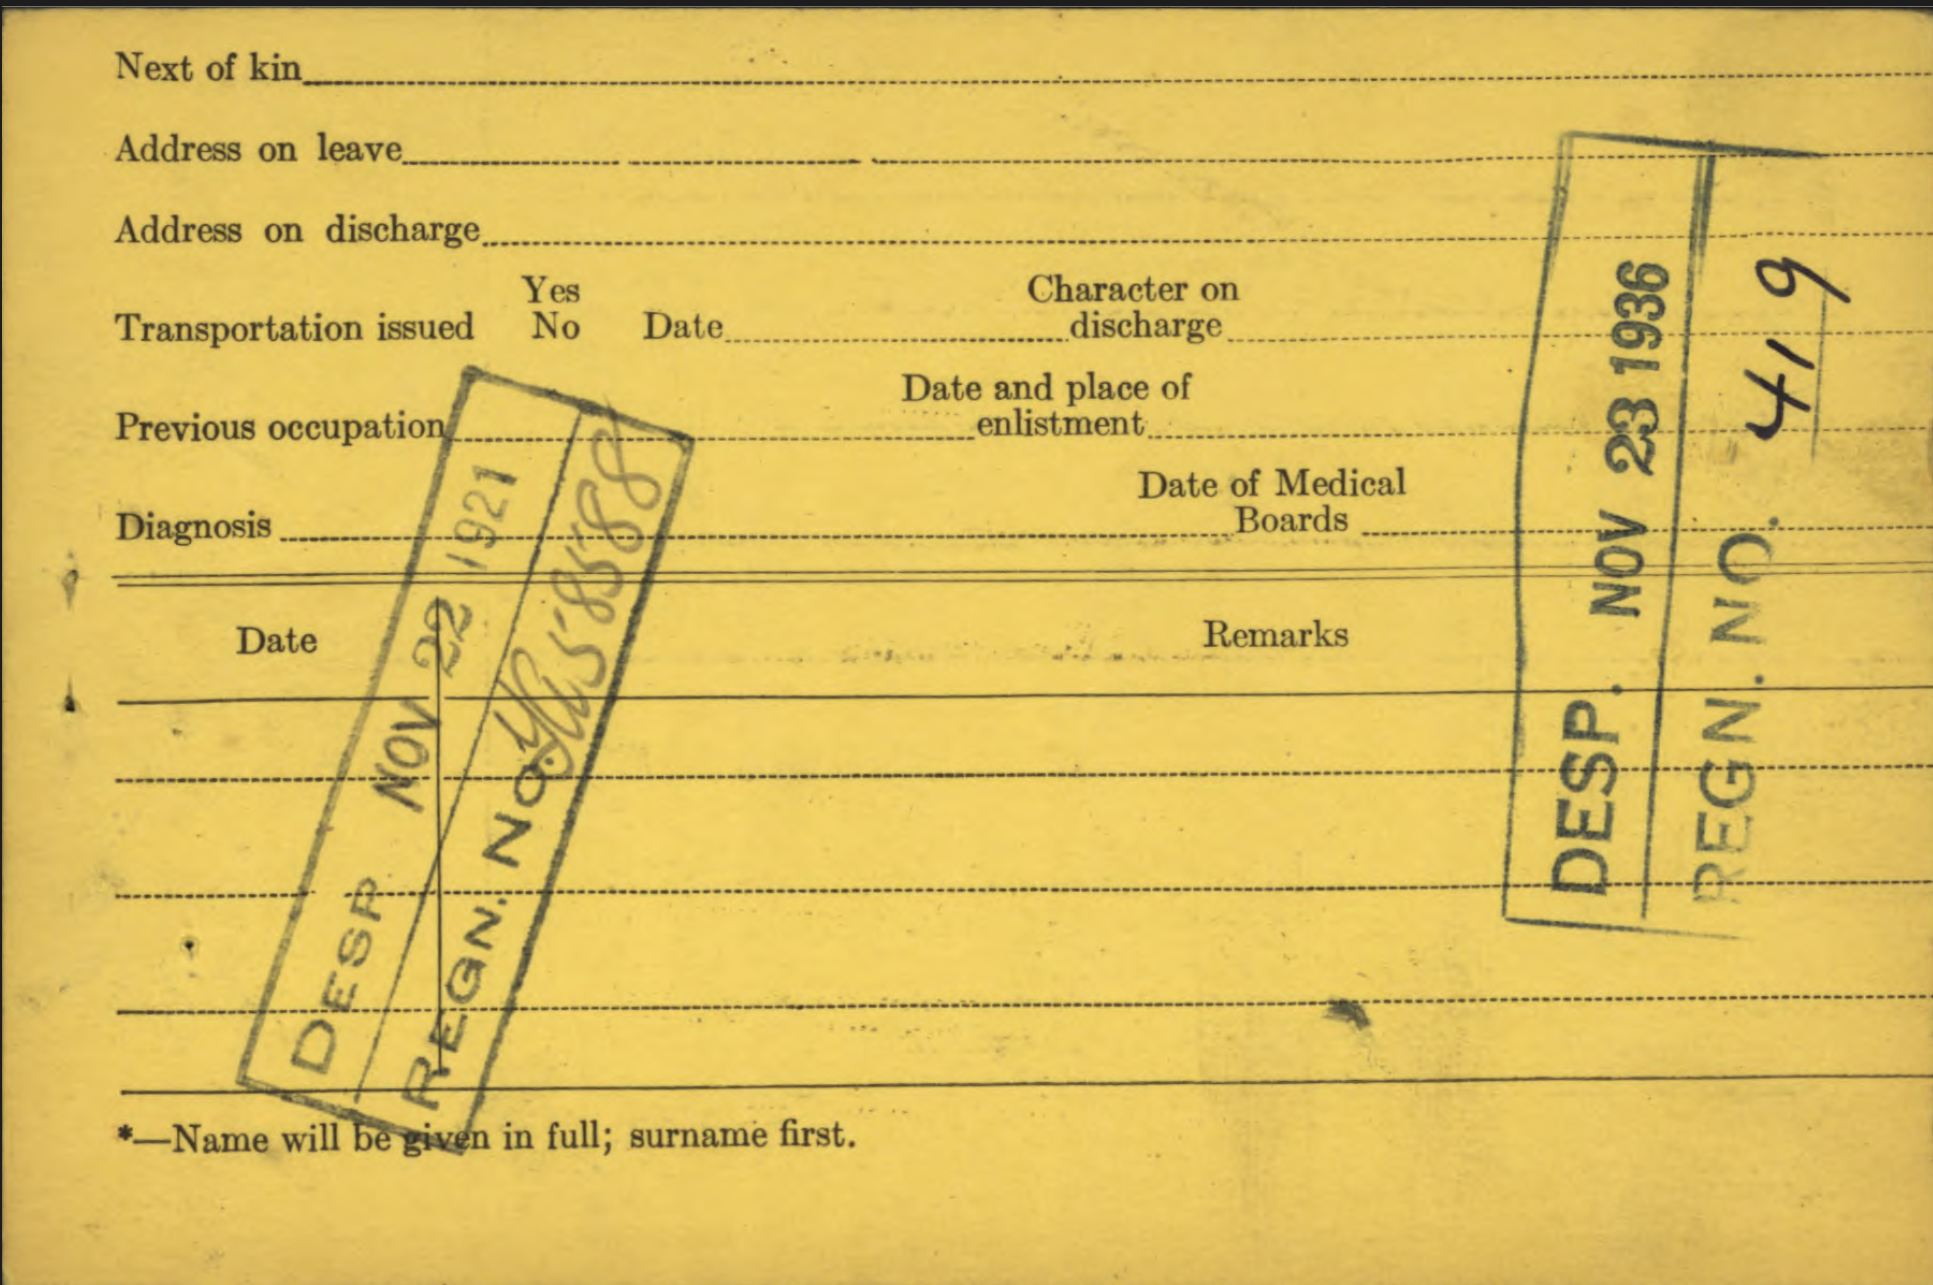 Next of kin
Address on leave
Address on discharge
Transportation issued Yes No Date Character on discharge
Previous occupation Date and place of enlistment
Diagnosis Date of Medical Boards
Date Remarks
DESP NOV 22 1921
REGN. No.
DESP. NOV 23 1936
REGN. NO. 419
*—Name will be given in full; surname first.